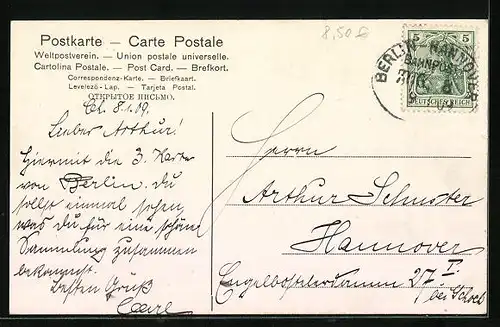 8,50 €
Postkarte – Carte Postale
Weltpostverein. – Union postale universelle.
Cartolina Postale. – Post Card. – Brefkort.
Correspondenz-Karte. – Briefkaart.
Levelező-Lap. – Tarjeta Postal.
ОТКРЫТОЕ ПИСЬМО.
5 5
DEUTSCHES REICH
BERLIN - HANNOVER
BAHNPOST
ZUG
8.1.09.
Lieber Arthur!
Hiermit die 3. Karte
von Berlin. du
sollst einmal sehen,
was du für eine schöne
Sammlung zusammen
bekommst.
Besten Gruß
Carl
Herrn
Arthur Schuster
Hannover
Engelbostelerdamm 27 I.
bei